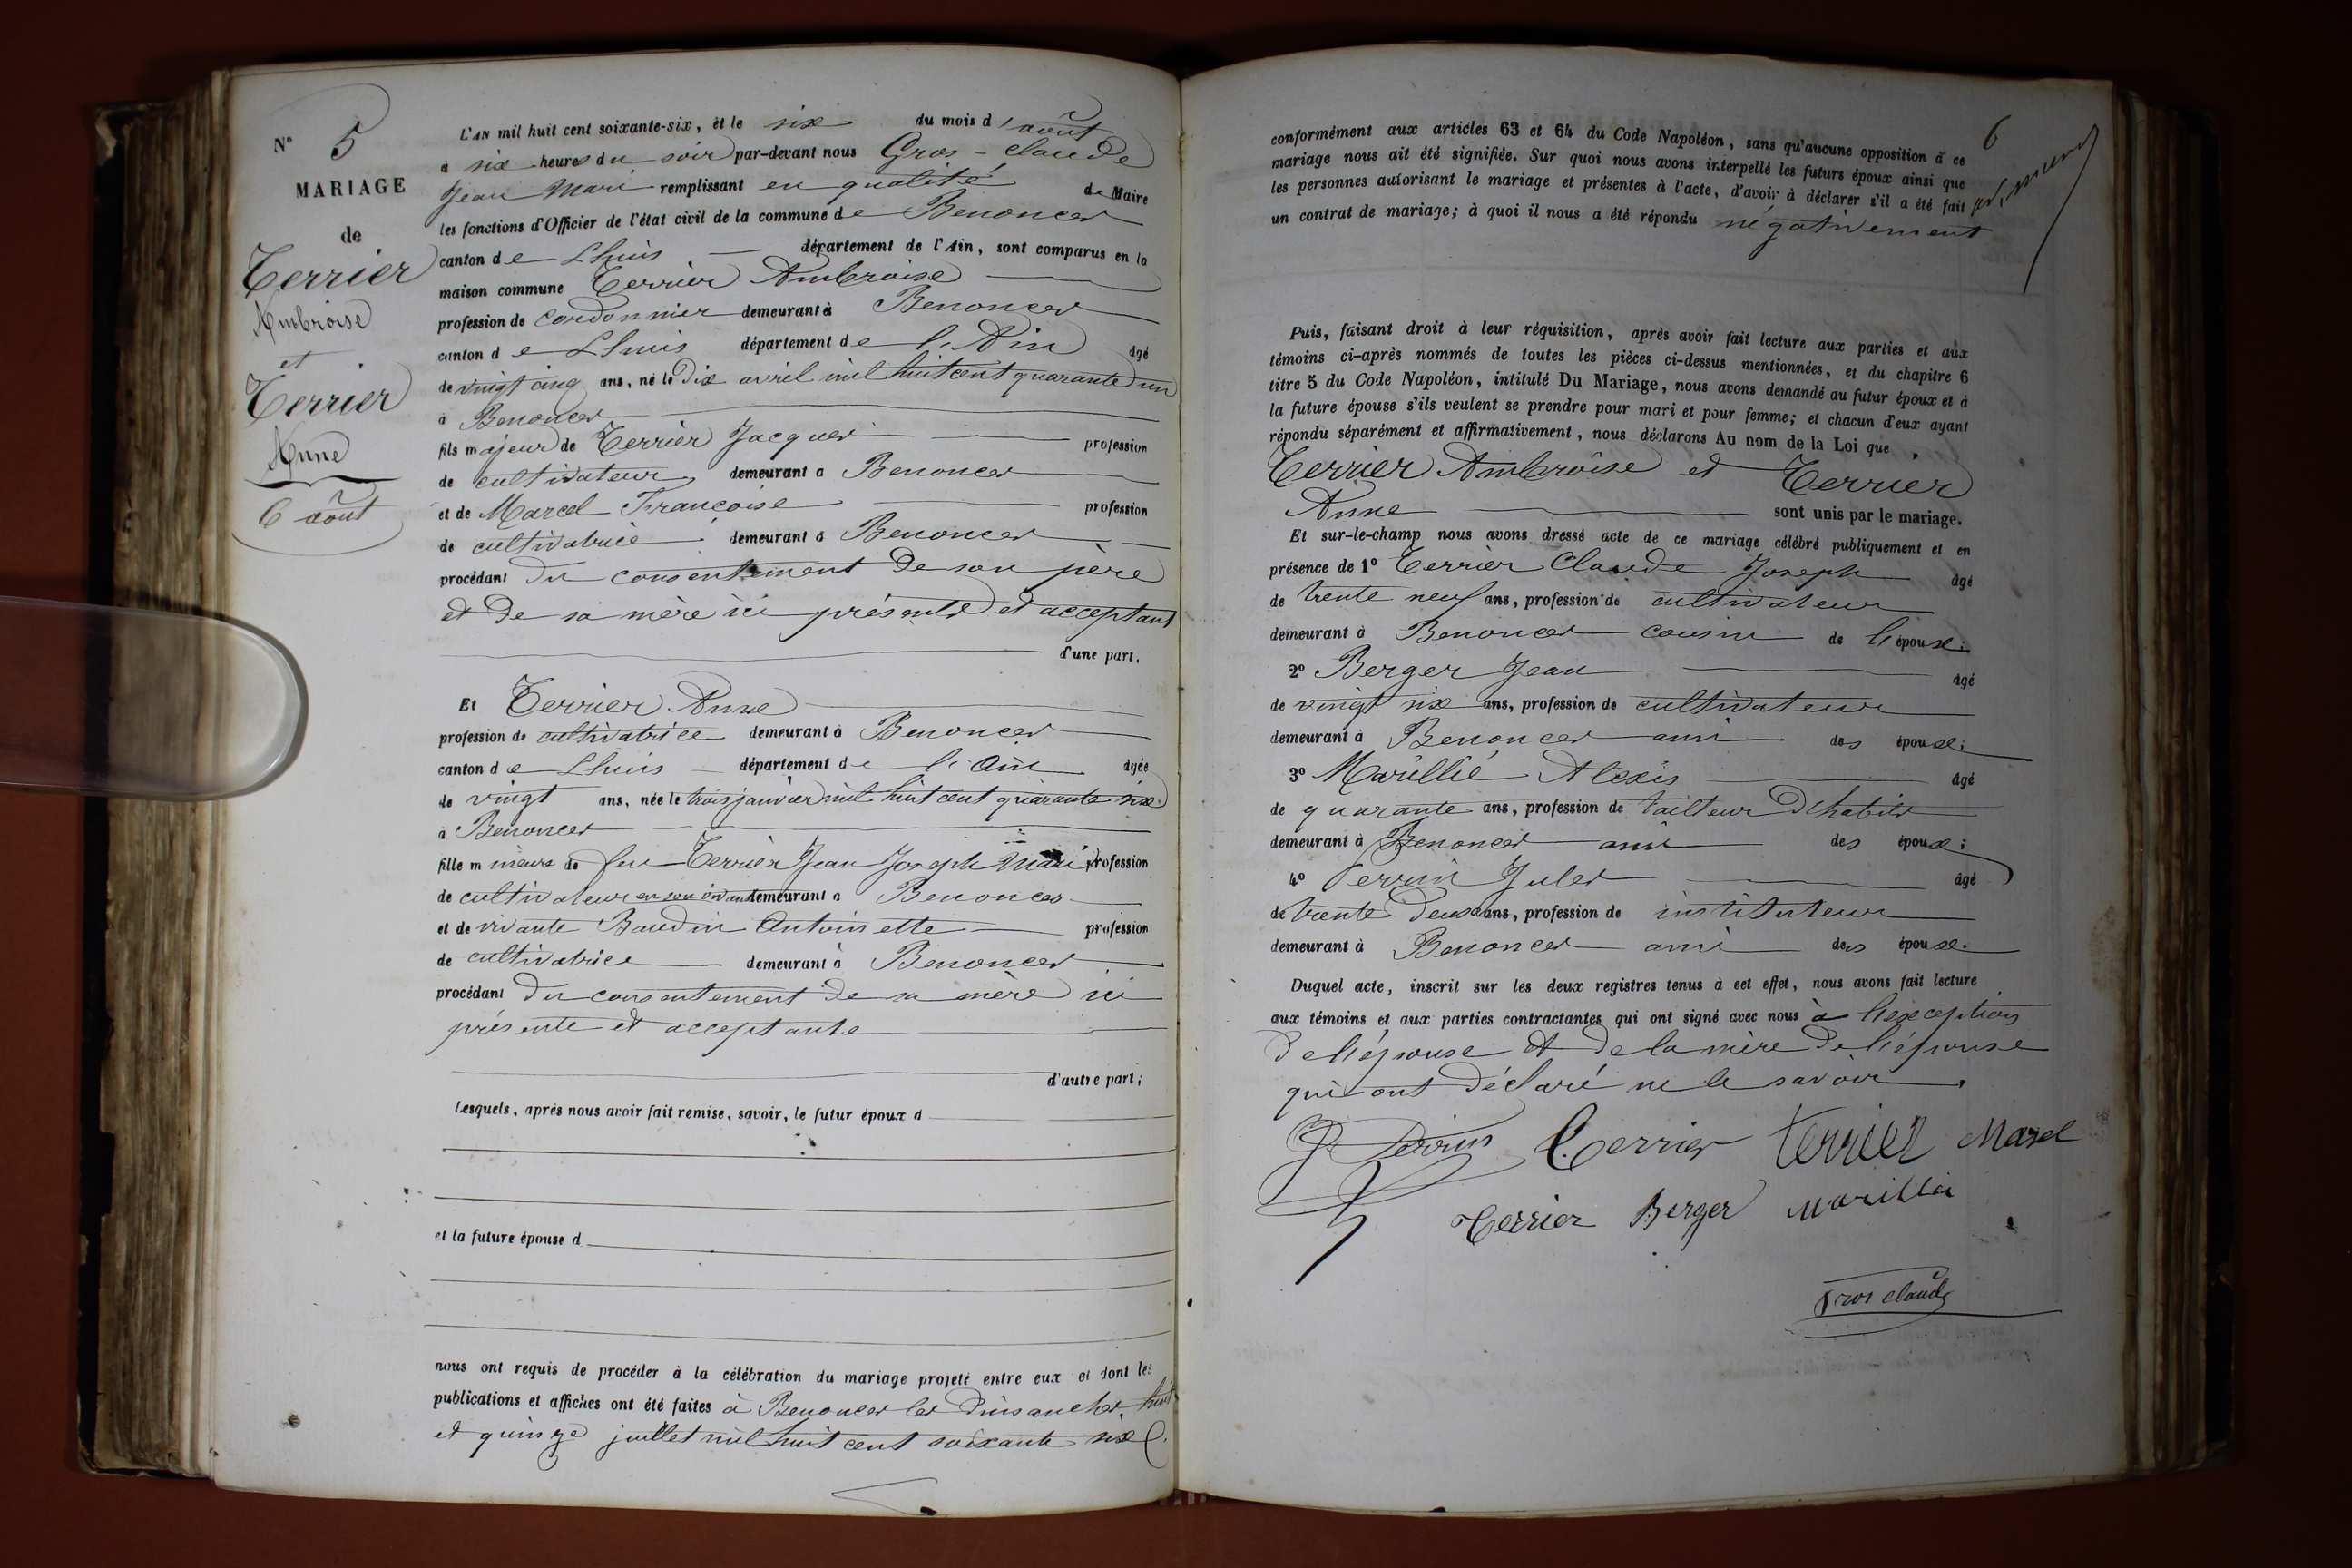 N° 5
MARIAGE
de
Terrier
Ambroise
et
Terrier
Anne
6 août
L'AN mil huit cent soixante-six, et le six du mois d'août
à six heures du soir par-devant nous Gros-claude
Jean Mari remplissant en qualité de Maire
les fonctions d'Officier de l'état civil de la commune de Benonces
canton de Lhuis département de l'Ain, sont comparus en la
maison commune Terrier Ambroise
profession de cordonnier demeurant à Benonces
canton de Lhuis département de l'Ain âgé
de vingt cinq ans, né le Dix avril mil huit cent quarante un
à Benonces
fils majeur de Terrier Jacques profession
de cultivateur demeurant à Benonces
et de Marcel Francoise profession
de cultivatrice demeurant à Benonces
procédant du consentement de son père
et de sa mère ici présents et acceptant
d'une part.
Et Terrier Anne
profession de cultivatrice demeurant à Benonces
canton de Lhuis département de l'Ain âgée
de vingt ans, née le trois janvier mil huit cent quarante six
à Benonces
fille mineure de feu Terrier Jean Joseph Mari profession
de cultivateur en son vivant demeurant à Benonces
et de vivante Baudin Antoinette profession
de cultivatrice demeurant à Benonces
procédant du consentement de sa mère ici
présente et acceptante
d'autre part;
Lesquels, après nous avoir fait remise, savoir, le futur époux d
et la future épouse d
nous ont requis de procéder à la célébration du mariage projeté entre eux et dont les
publications et affiches ont été faites à Benonces les dimanches huit
et quinze juillet mil huit cent soixante six
6
conformément aux articles 63 et 64 du Code Napoléon, sans qu'aucune opposition à ce
mariage nous ait été signifiée. Sur quoi nous avons interpellé les futurs époux ainsi que
les personnes autorisant le mariage et présentes à l'acte, d'avoir à déclarer s'il a été fait
un contrat de mariage; à quoi il nous a été répondu négativement
Puis, faisant droit à leur réquisition, après avoir fait lecture aux parties et aux
témoins ci-après nommés de toutes les pièces ci-dessus mentionnées, et du chapitre 6
titre 5 du Code Napoléon, intitulé Du Mariage, nous avons demandé au futur époux et à
la future épouse s'ils veulent se prendre pour mari et pour femme; et chacun d'eux ayant
répondu séparément et affirmativement, nous déclarons Au nom de la Loi que
Terrier Ambroise et Terrier
Anne sont unis par le mariage.
Et sur-le-champ nous avons dressé acte de ce mariage célébré publiquement et en
présence de 1° Terrier Claude Joseph âgé
de trente neuf ans, profession de cultivateur
demeurant à Benonces cousin de l'épouse;
2° Berger Jean âgé
de vingt six ans, profession de cultivateur
demeurant à Benonces ami des époux;
3° Marillié Alexis âgé
de quarante ans, profession de tailleur d'habits
demeurant à Benonces ami des époux;
4° Perrin Jules âgé
de trente deux ans, profession de instituteur
demeurant à Benonces ami des époux.
Duquel acte, inscrit sur les deux registres tenus à cet effet, nous avons fait lecture
aux témoins et aux parties contractantes qui ont signé avec nous à l'exception
de l'épouse et de la mère de l'épouse
qui ont déclaré ne le savoir.
J. Perrin Terrier terrier Marcel
Terrier Berger Marillié
Gros claude